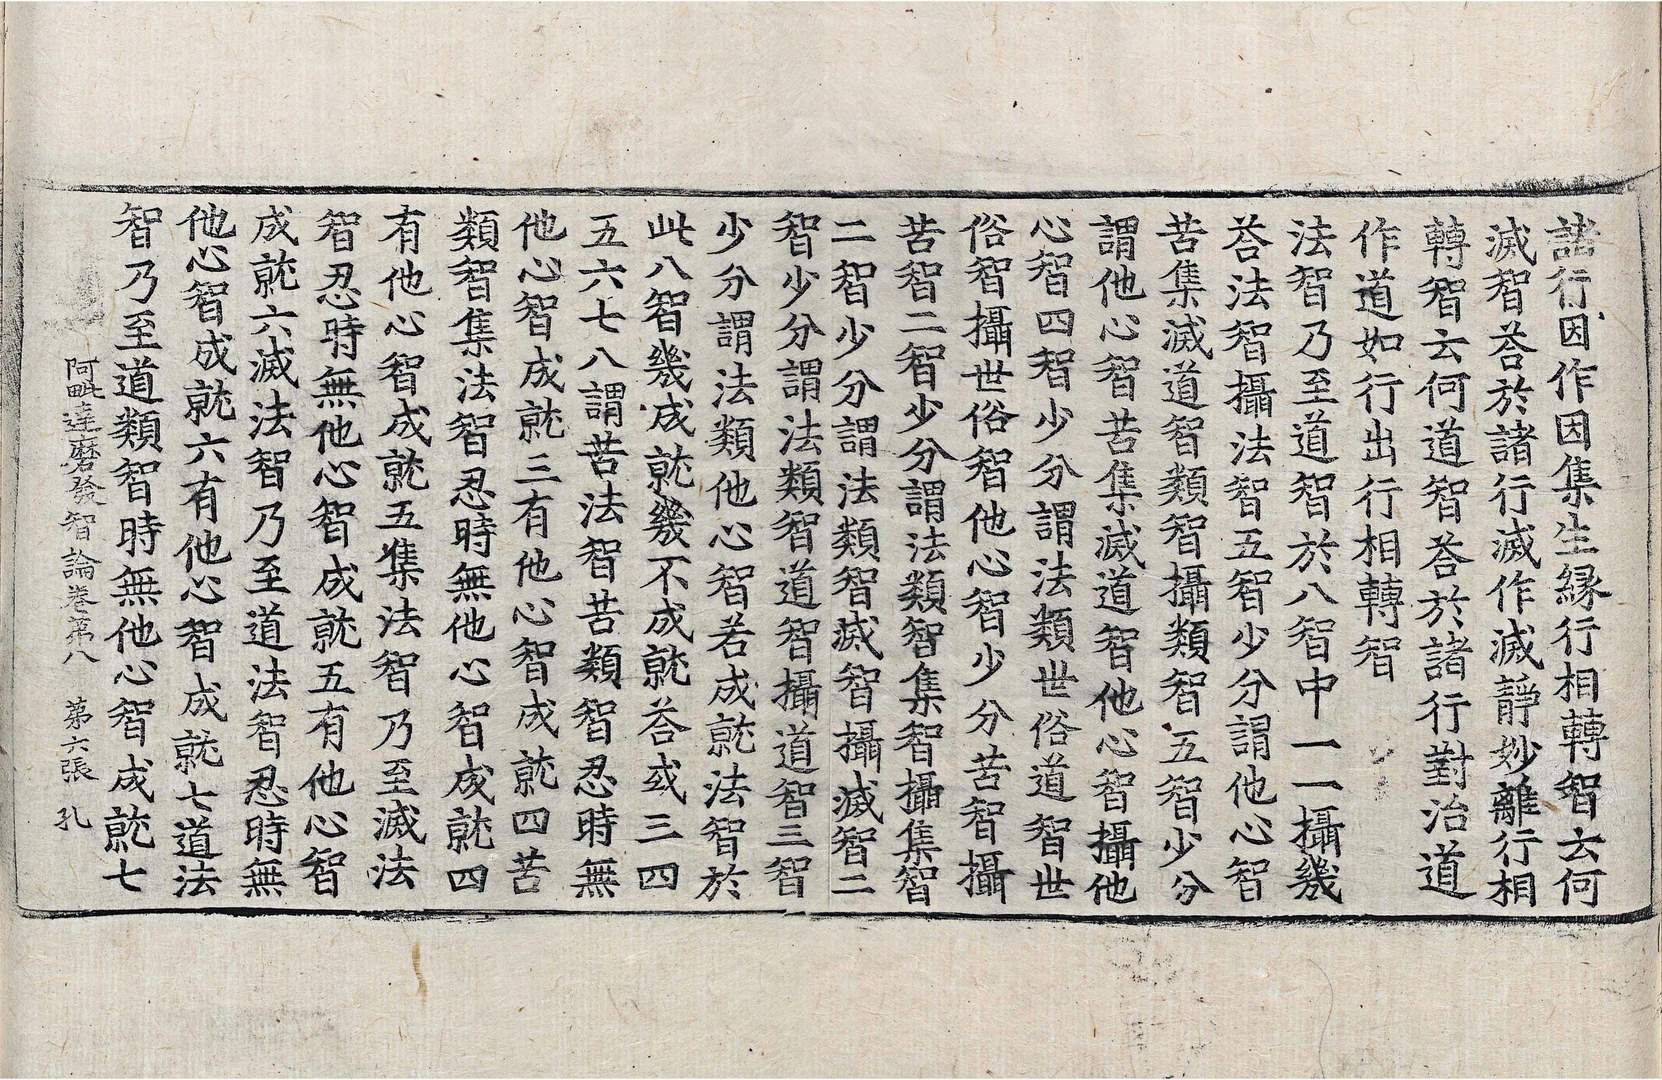 諸行因作因集生縁行相轉智云何
滅智荅於諸行滅作滅靜妙離行相
轉智云何道智荅於諸行對治道
作道如行出行相轉智
法智乃至道智於八智中一一攝幾
荅法智攝法智五智少分謂他心智
苦集滅道智類智攝類智五智少分
謂他心智苦集滅道智他心智攝他
心智四智少分謂法類世俗道智世
俗智攝世俗智他心智少分苦智攝
苦智二智少分謂法類智集智攝集智
二智少分謂法類智滅智攝滅智二
智少分謂法類智道智攝道智三智
少分謂法類他心智若成就法智於
此八智幾成就幾不成就荅或三四
五六七八謂苦法智苦類智忍時無
他心智成就三有他心智成就四苦
類智集法智忍時無他心智成就四
有他心智成就五集法智乃至滅法
智忍時無他心智成就五有他心智
成就六滅法智乃至道法智忍時無
他心智成就六有他心智成就七道法
智乃至道類智時無他心智成就七
阿毗達磨發智論卷第八　第六張　孔